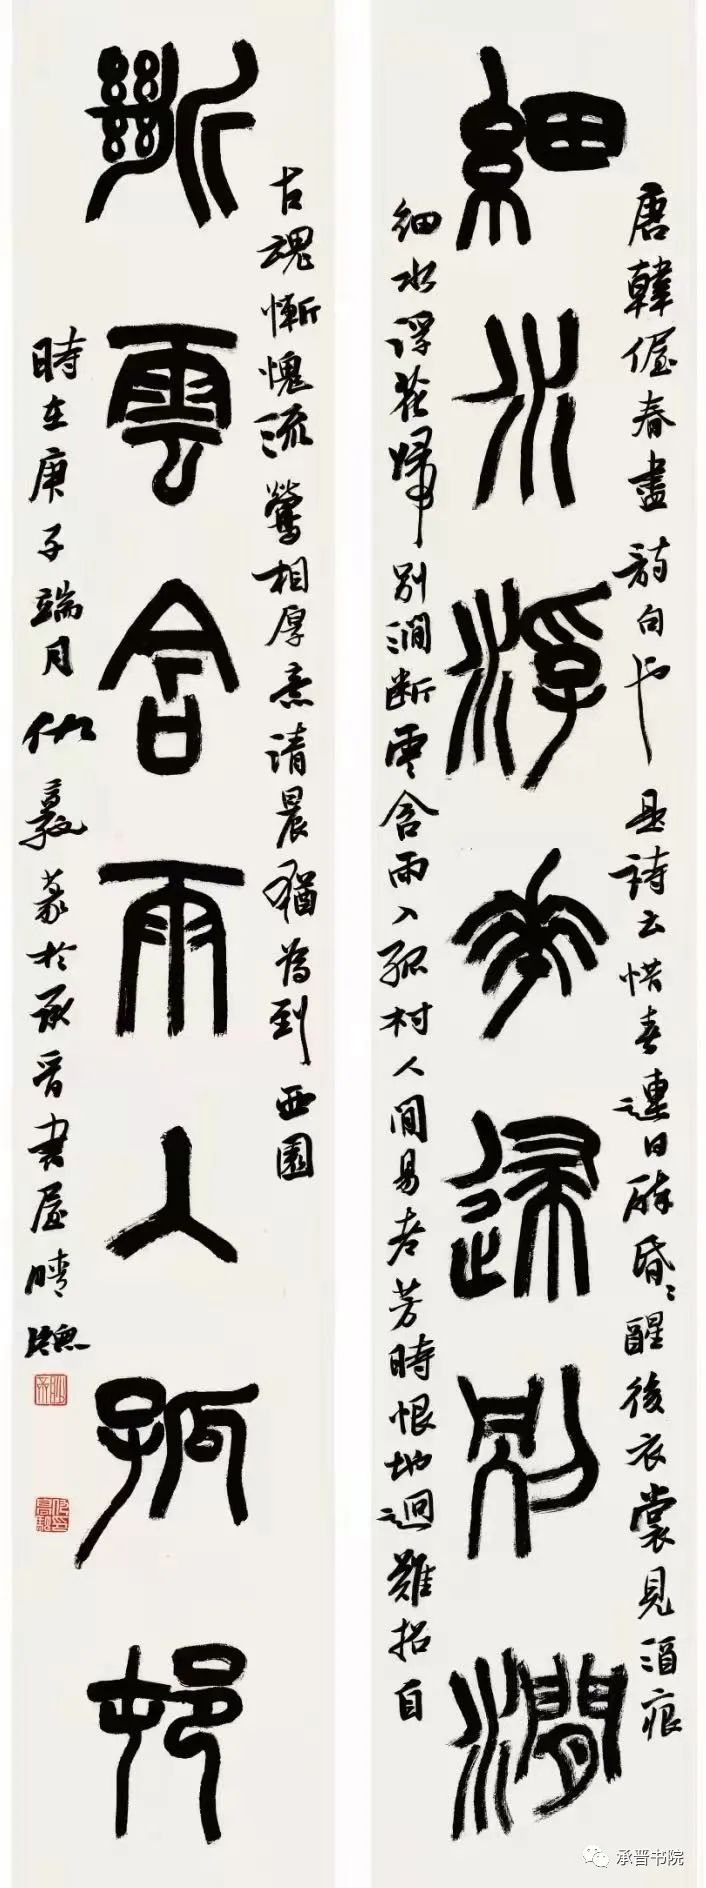 唐韓偓春盡詩句也 是詩云惜春連日醉昏〻醒後衣裳見酒痕
細水浮花歸別澗
細水浮花歸別澗斷雲含雨入孤村人間易老芳時恨地迥難招自
古魂慚愧流鶯相厚意清晨猶為到西園
斷雲含雨入孤邨
時在庚子端月仇篆於承晋書屋晴牕
承晋书院